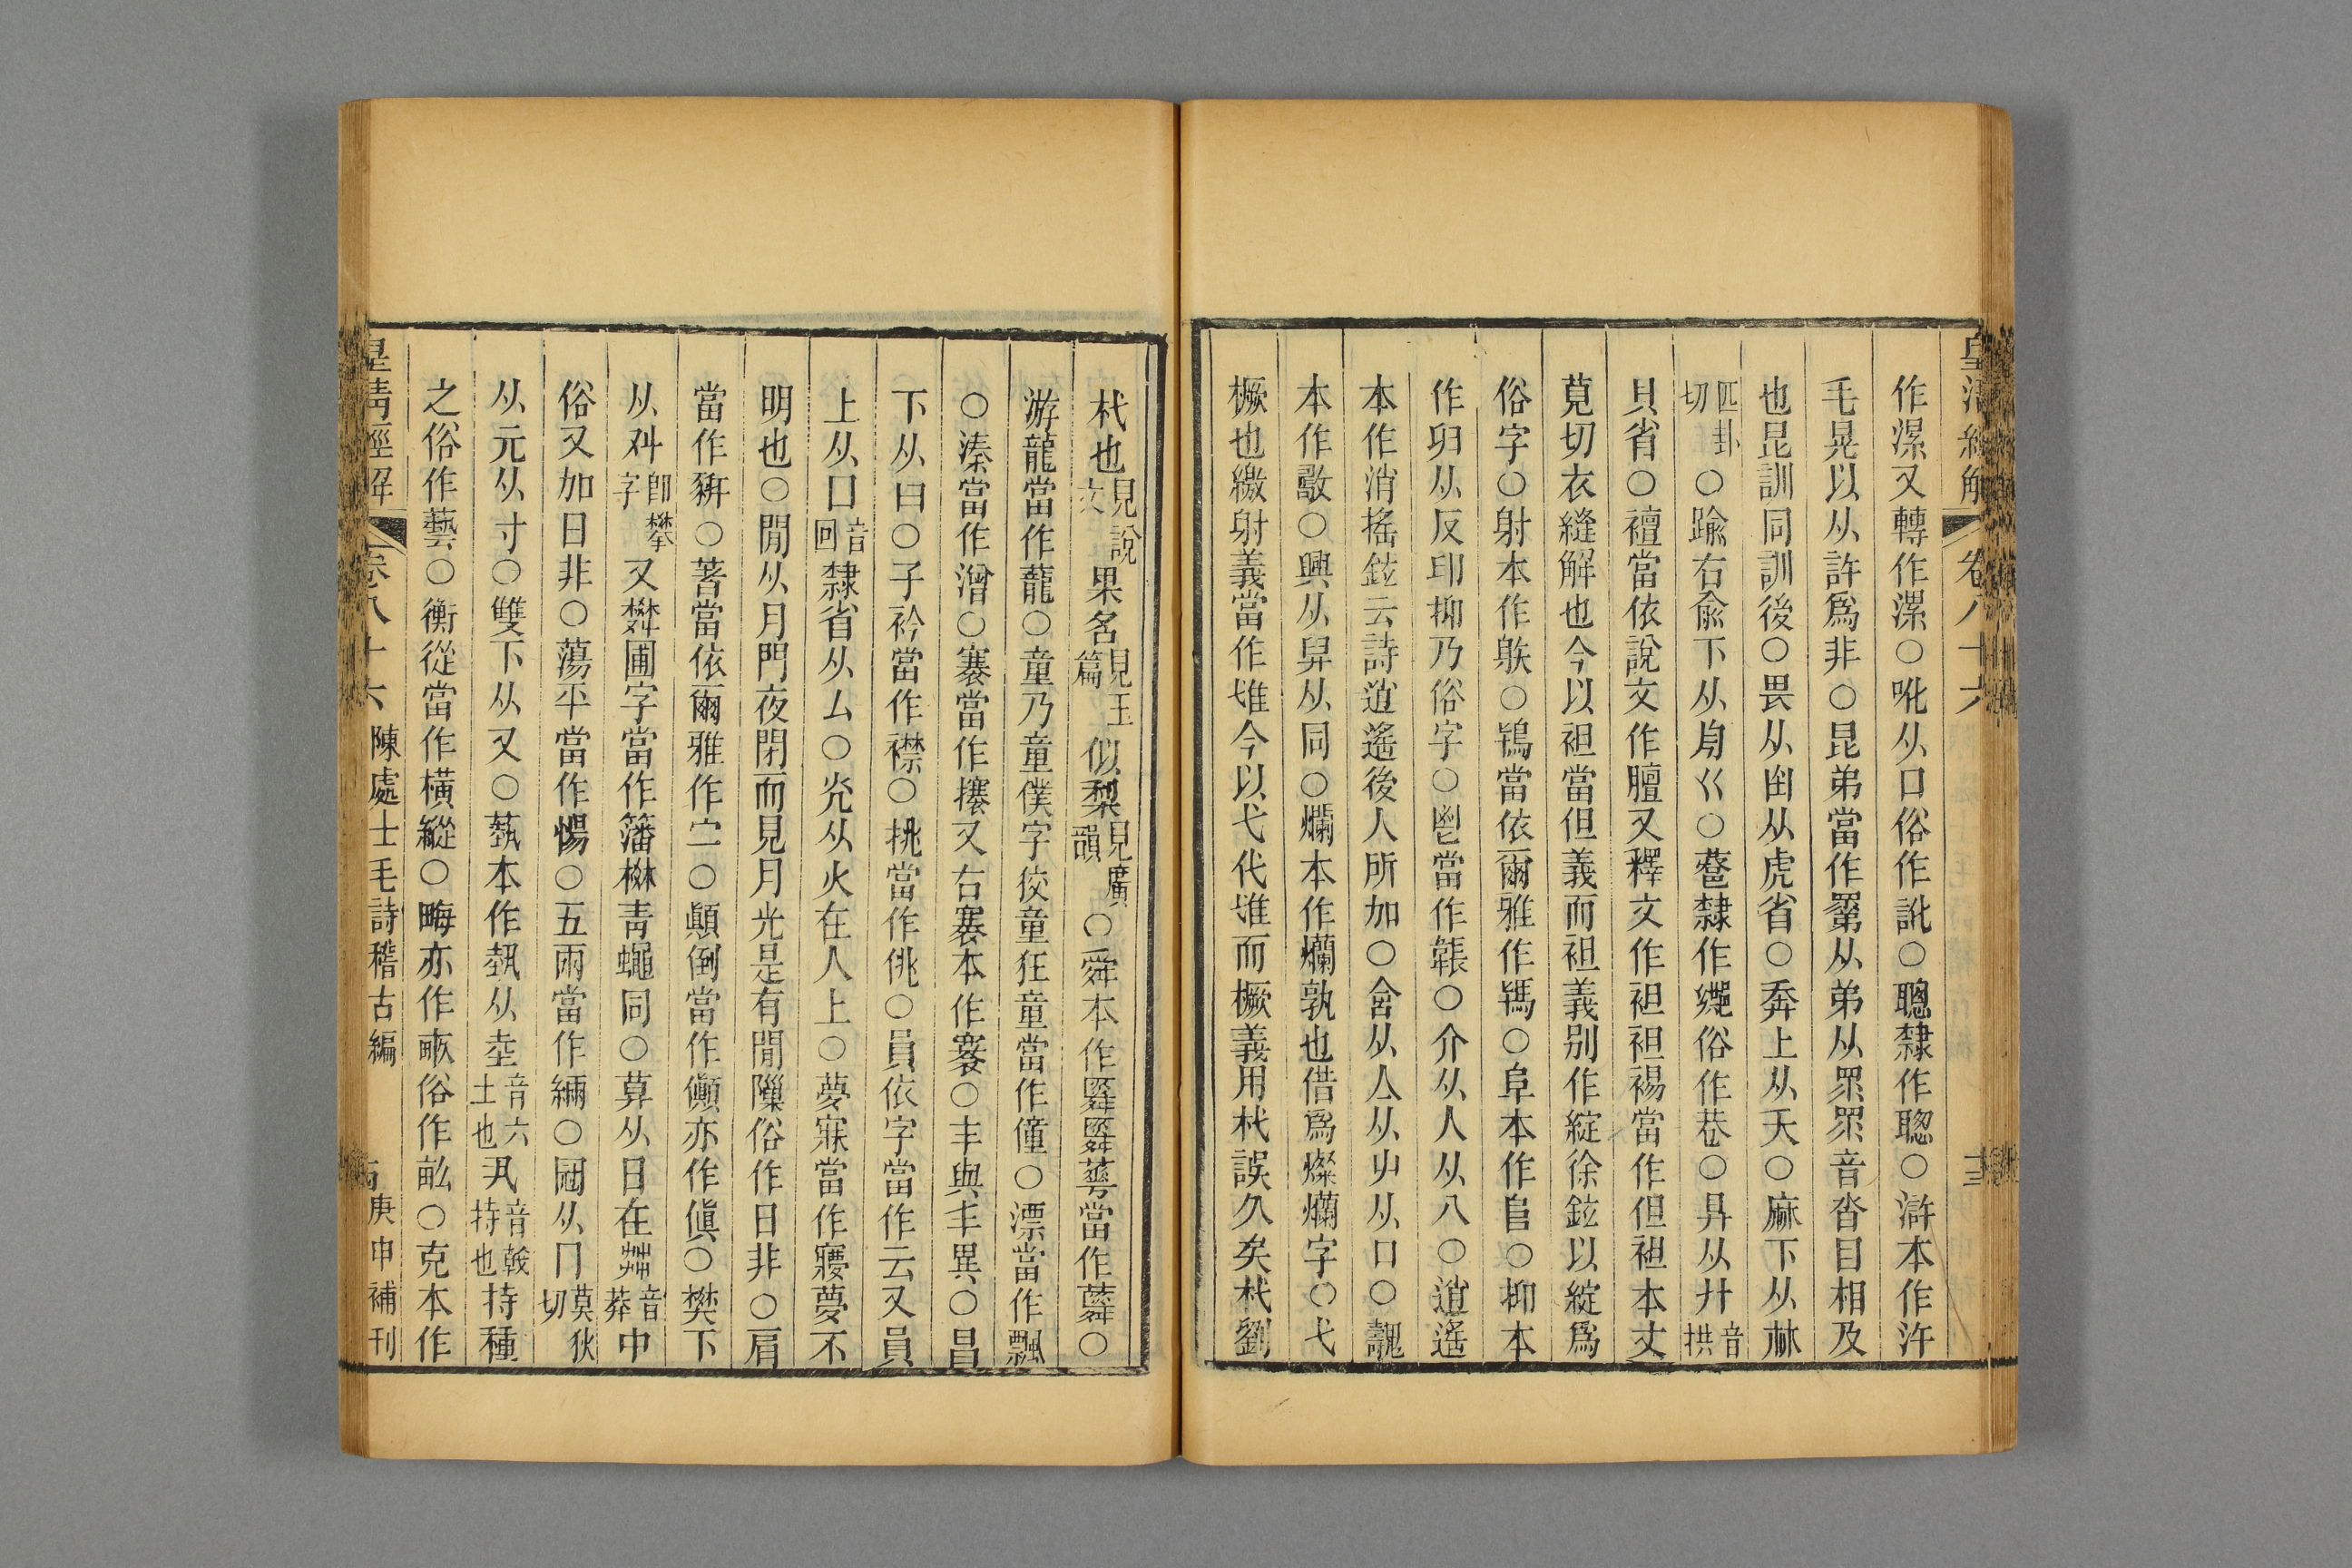 皇清經解 卷八十六 十三
作漯又轉作漯○吪从口俗作訛○聰隸作聦○滸本作汻
毛晃以从許爲非○昆弟當作䍤从弟从眔眔音沓目相及
也昆訓同訓後○畏从甶从虎省○奔上从夭○麻下从𣏟
匹卦切○踰右兪下从舟巜○𨞠隸作𨞠俗作巷○具从廾音拱
貝省○襢當依說文作膻又釋文作袒袒裼當作但袒本丈
莧切衣縫解也今以袒當但義而袒義別作綻徐鉉以綻爲
俗字○射本作䠶○鴇當依爾雅作鴇○阜本作𨸏○抑本
作𢑏从反印抑乃俗字○鬯當作韔○介从人从八○逍遙
本作消搖鉉云詩逍遙後人所加○舍从亼从屮从口○魗
本作𢾭○興从舁从同○爛本作爤孰也借爲燦爛字○弋
橛也繳射義當作隿今以弋代隿而橛義用杙誤久矣杙劉
杙也見說文果名見玉篇似梨見廣韻○舜本作䑞䑞蕣當作䕭○
游龍當作蘢○童乃童僕字佼童狂童當作僮○漂當作飄
○溱當作潧○褰當作攐又右褰本作褰○丰與丯異○昌
下从曰○子衿當作䘳○挑當作佻○員依字當作云又員
上从囗音回隸省从厶○光从火在人上○夢寐當作㝱夢不
明也○閒从月門夜閉而見月光是有閒隟俗作日非○肩
當作豜○著當依爾雅作宁○顚倒當作傎亦作傎○樊下
从𠬜卽攀字又樊圃字當作籓棥靑蠅同○莫从日在茻音莽中
俗又加日非○蕩平當作愓○五兩當作緉○冠从冖莫狄切
从元从寸○雙下从又○蓺本作埶从坴音六土也丮音戟持也持種
之俗作藝○衡從當作橫縱○畮亦作畞俗作畝○克本作
皇清經解 卷八十六 陳處士毛詩稽古編 庚申補刊